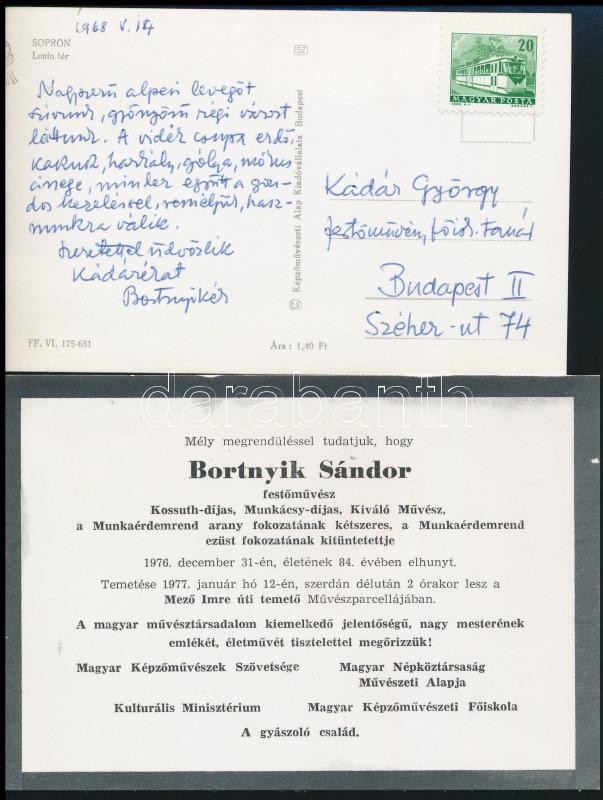 1968 V. 14
SOPRON
Lenin tér
SZ
20
MAGYAR POSTA
Nagyszerű alpesi levegőt
szívunk, gyönyörű régi várost
láttunk. A vidék csupa erdő,
kakuk, harkály, gólya, mókus
össege, mindez együtt a gon-
dos kezeléssel, reméljük, hasz-
nunkra válik.
Szeretettel üdvözlik
Kádárékat
Bortnyikék
Kádár György
festőművész, főisk. tanár
Budapest II
Széher-ut 74
© Képzőművészeti Alap Kiadóvállalata Budapest
FF. VI. 175-681
Ára: 1,40 Ft
darabanth
Mély megrendüléssel tudatjuk, hogy
Bortnyik Sándor
festőművész
Kossuth-díjas, Munkácsy-díjas, Kiváló Művész,
a Munkaérdemrend arany fokozatának kétszeres, a Munkaérdemrend
ezüst fokozatának kitüntetettje
1976. december 31-én, életének 84. évében elhunyt.
Temetése 1977. január hó 12-én, szerdán délután 2 órakor lesz a
Mező Imre úti temető Művészparcellájában.
A magyar művésztársadalom kiemelkedő jelentőségű, nagy mesterének
emlékét, életművét tisztelettel megőrizzük!
Magyar Képzőművészek Szövetsége
Magyar Népköztársaság
Művészeti Alapja
Kulturális Minisztérium
Magyar Képzőművészeti Főiskola
A gyászoló család.